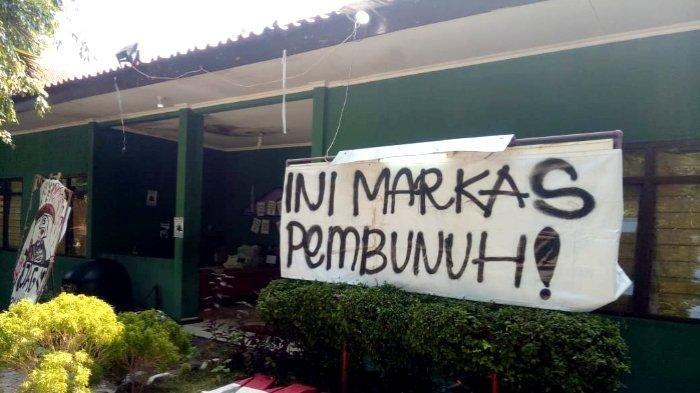 INI MARKAS
PEMBUNUH!